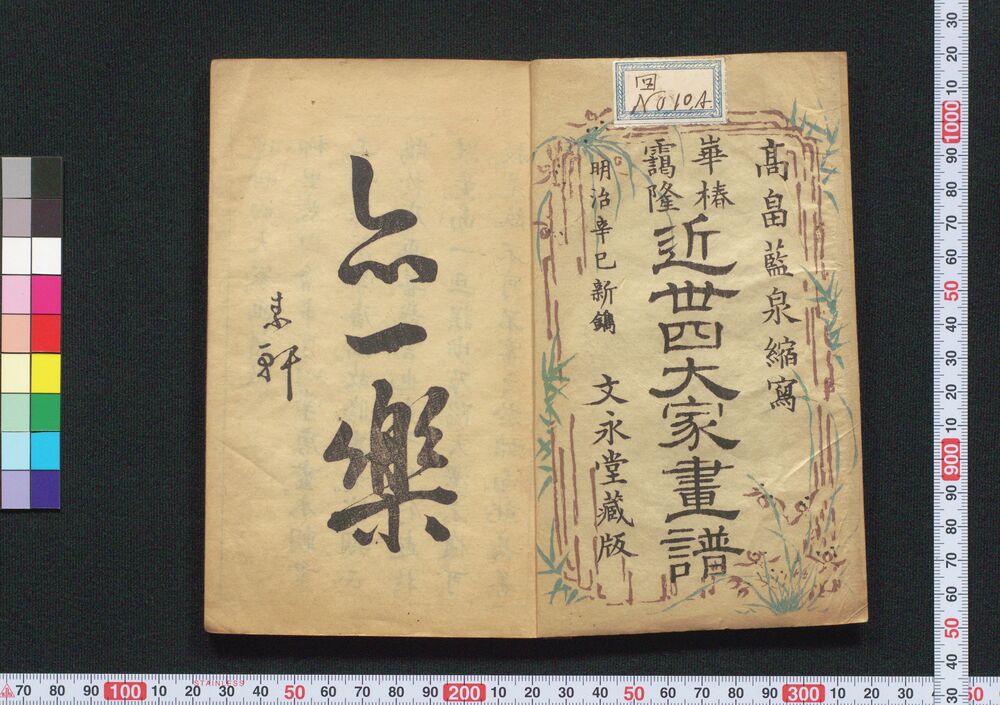 回
NO 10A
高畠藍泉縮寫
崋椿
靄隆
近世四大家畫譜
明治辛巳新鐫
文永堂藏版
亦一樂
軒
70 80 90 100 10 20 30 40 50 60 70 80 90 200 10 20 30 40 50 60 70 80 90 300 10 20 30
STAINLESS
30 20 10 1000 90 80 70 60 50 40 30 20 10 900 90 80 70 60 50 40 30